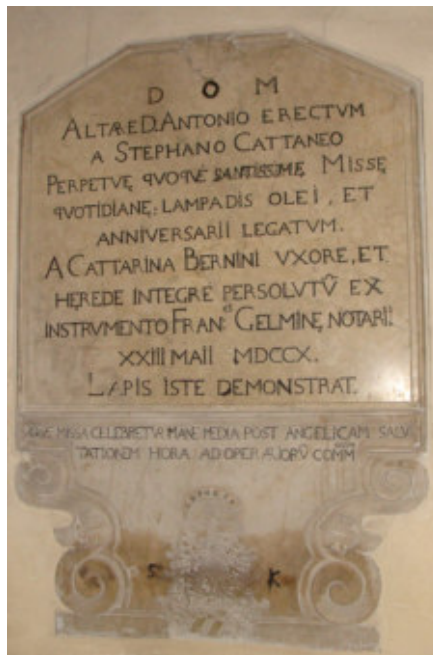 D O M
ALTARE D. ANTONIO ERECTVM
A STEPHANO CATTANEO
PERPETVĘ QVOQVÉ SANTISSIMĘ MISSĘ
QVOTIDIANĘ; LAMPADIS OLEI, ET
ANNIVERSARII LEGATVM.
A CATTARINA BERNINI VXORE, ET
HEREDE INTEGRE PERSOLVTV̂ EX
INSTRVMENTO FRAN:ci GELMINĘ NOTARII
XXIII MAII MDCCX.
LAPIS ISTE DEMONSTRAT.
MISSA CELEBRETVR MANE MEDIA POST ANGELICAM SALV
TATIONEM HORA AD OPERARIORV̂ COMM
S K